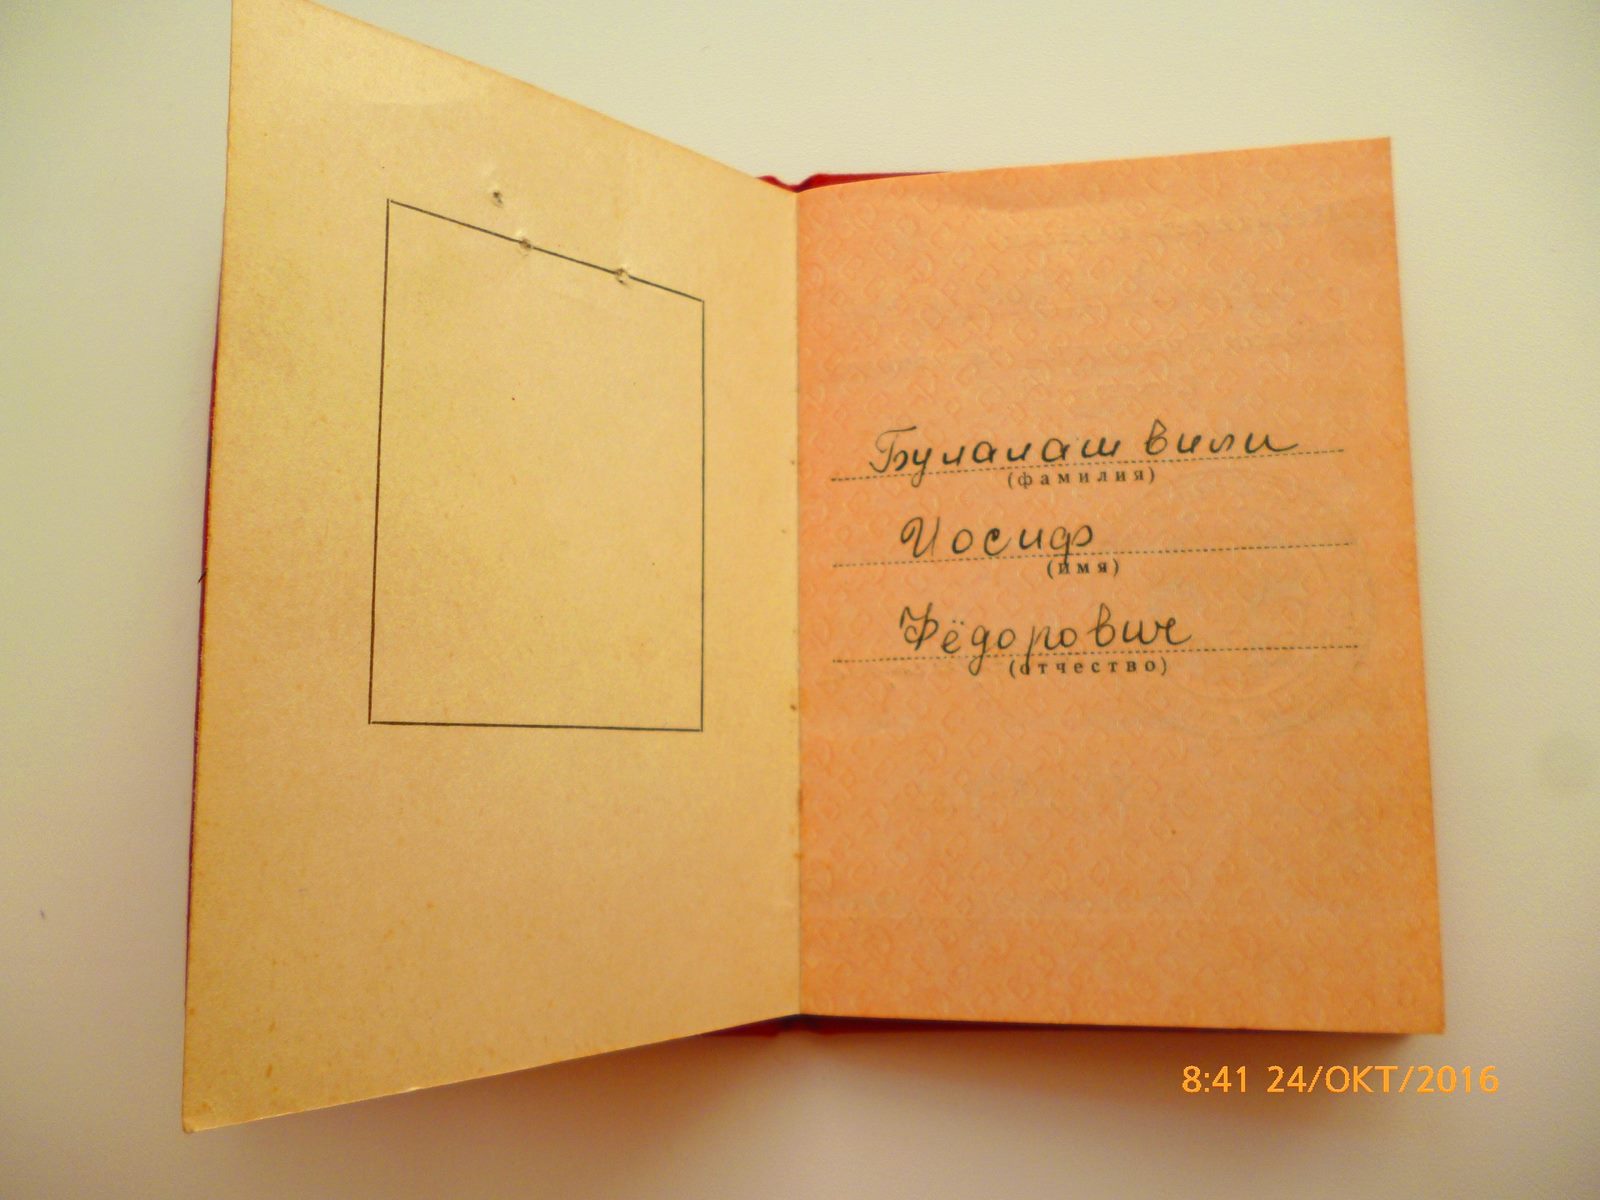 Булалашвили
(фамилия)
Иосиф
(имя)
Фёдорович
(отчество)
8:41 24/ОКТ/2016